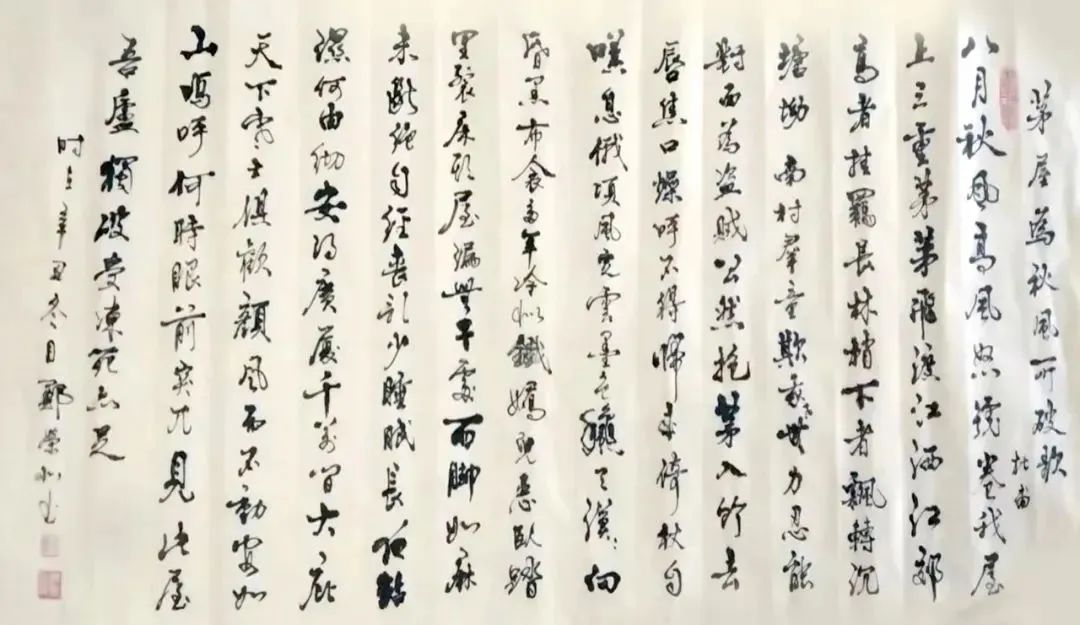 茅屋為秋風所破歌
杜甫
八月秋風高風怒號卷我屋
上三重茅茅飛渡江洒江郊
高者挂罥長林梢下者飄轉沉
塘坳南村羣童欺我老無力忍能
對面為盜賊公然抱茅入竹去
唇焦口燥呼不得歸來倚杖自
嘆息俄頃風定雲墨色穐天漠漠向
昏黑布衾多年冷似鐵嬌兒惡臥踏
里裂床頭屋漏無干處雨脚如麻
未斷絕自經喪亂少睡眠長夜黏
濕何由徹安得廣廈千萬間大庇
天下寒士俱歡顏風雨不動安如
山嗚呼何時眼前突兀見此屋
吾廬獨破受凍死亦足
时在辛丑冬月鄭榮